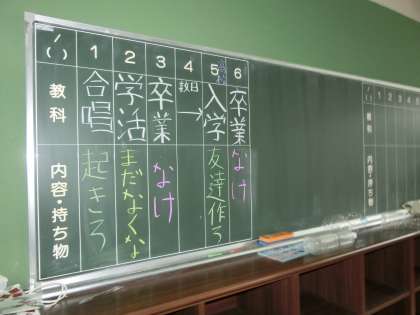 ／
（　）
1
2
3
4
5
6
教科
合唱
学活
卒業
数日
→
入学
卒業
内容・持ち物
起きろ
まだなくな
なけ
友達作ろ
なけ
／
（　）
1
2
3
4
教科
内容・持ち物